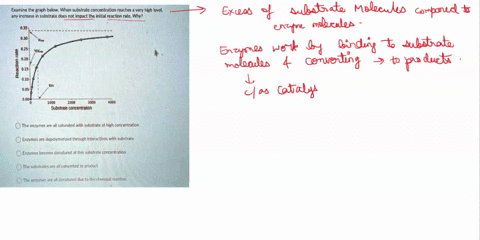 Examine the graph below. When substrate concentration reaches a very high level,
any increase in substrate does not impact the initial reaction rate. Why?
0.35
0.30
0.25
0.20
0.15
0.10
0.05
0.00
0
1000
2000
3000
4000
Substrate concentration
The enzymes are all saturated with substrate at high concentration
Enzymes are depolymerized through interactions with substrate
Enzymes become denatured at this substrate concentration
The substrates are all converted to product
The enzymes are all denatured due to the chemical reaction
Excess of substrate Molecules compared to
enzyme molecules.
Enzymes work by binding to substrate
molecules & converting → to products.
↓
as catalys